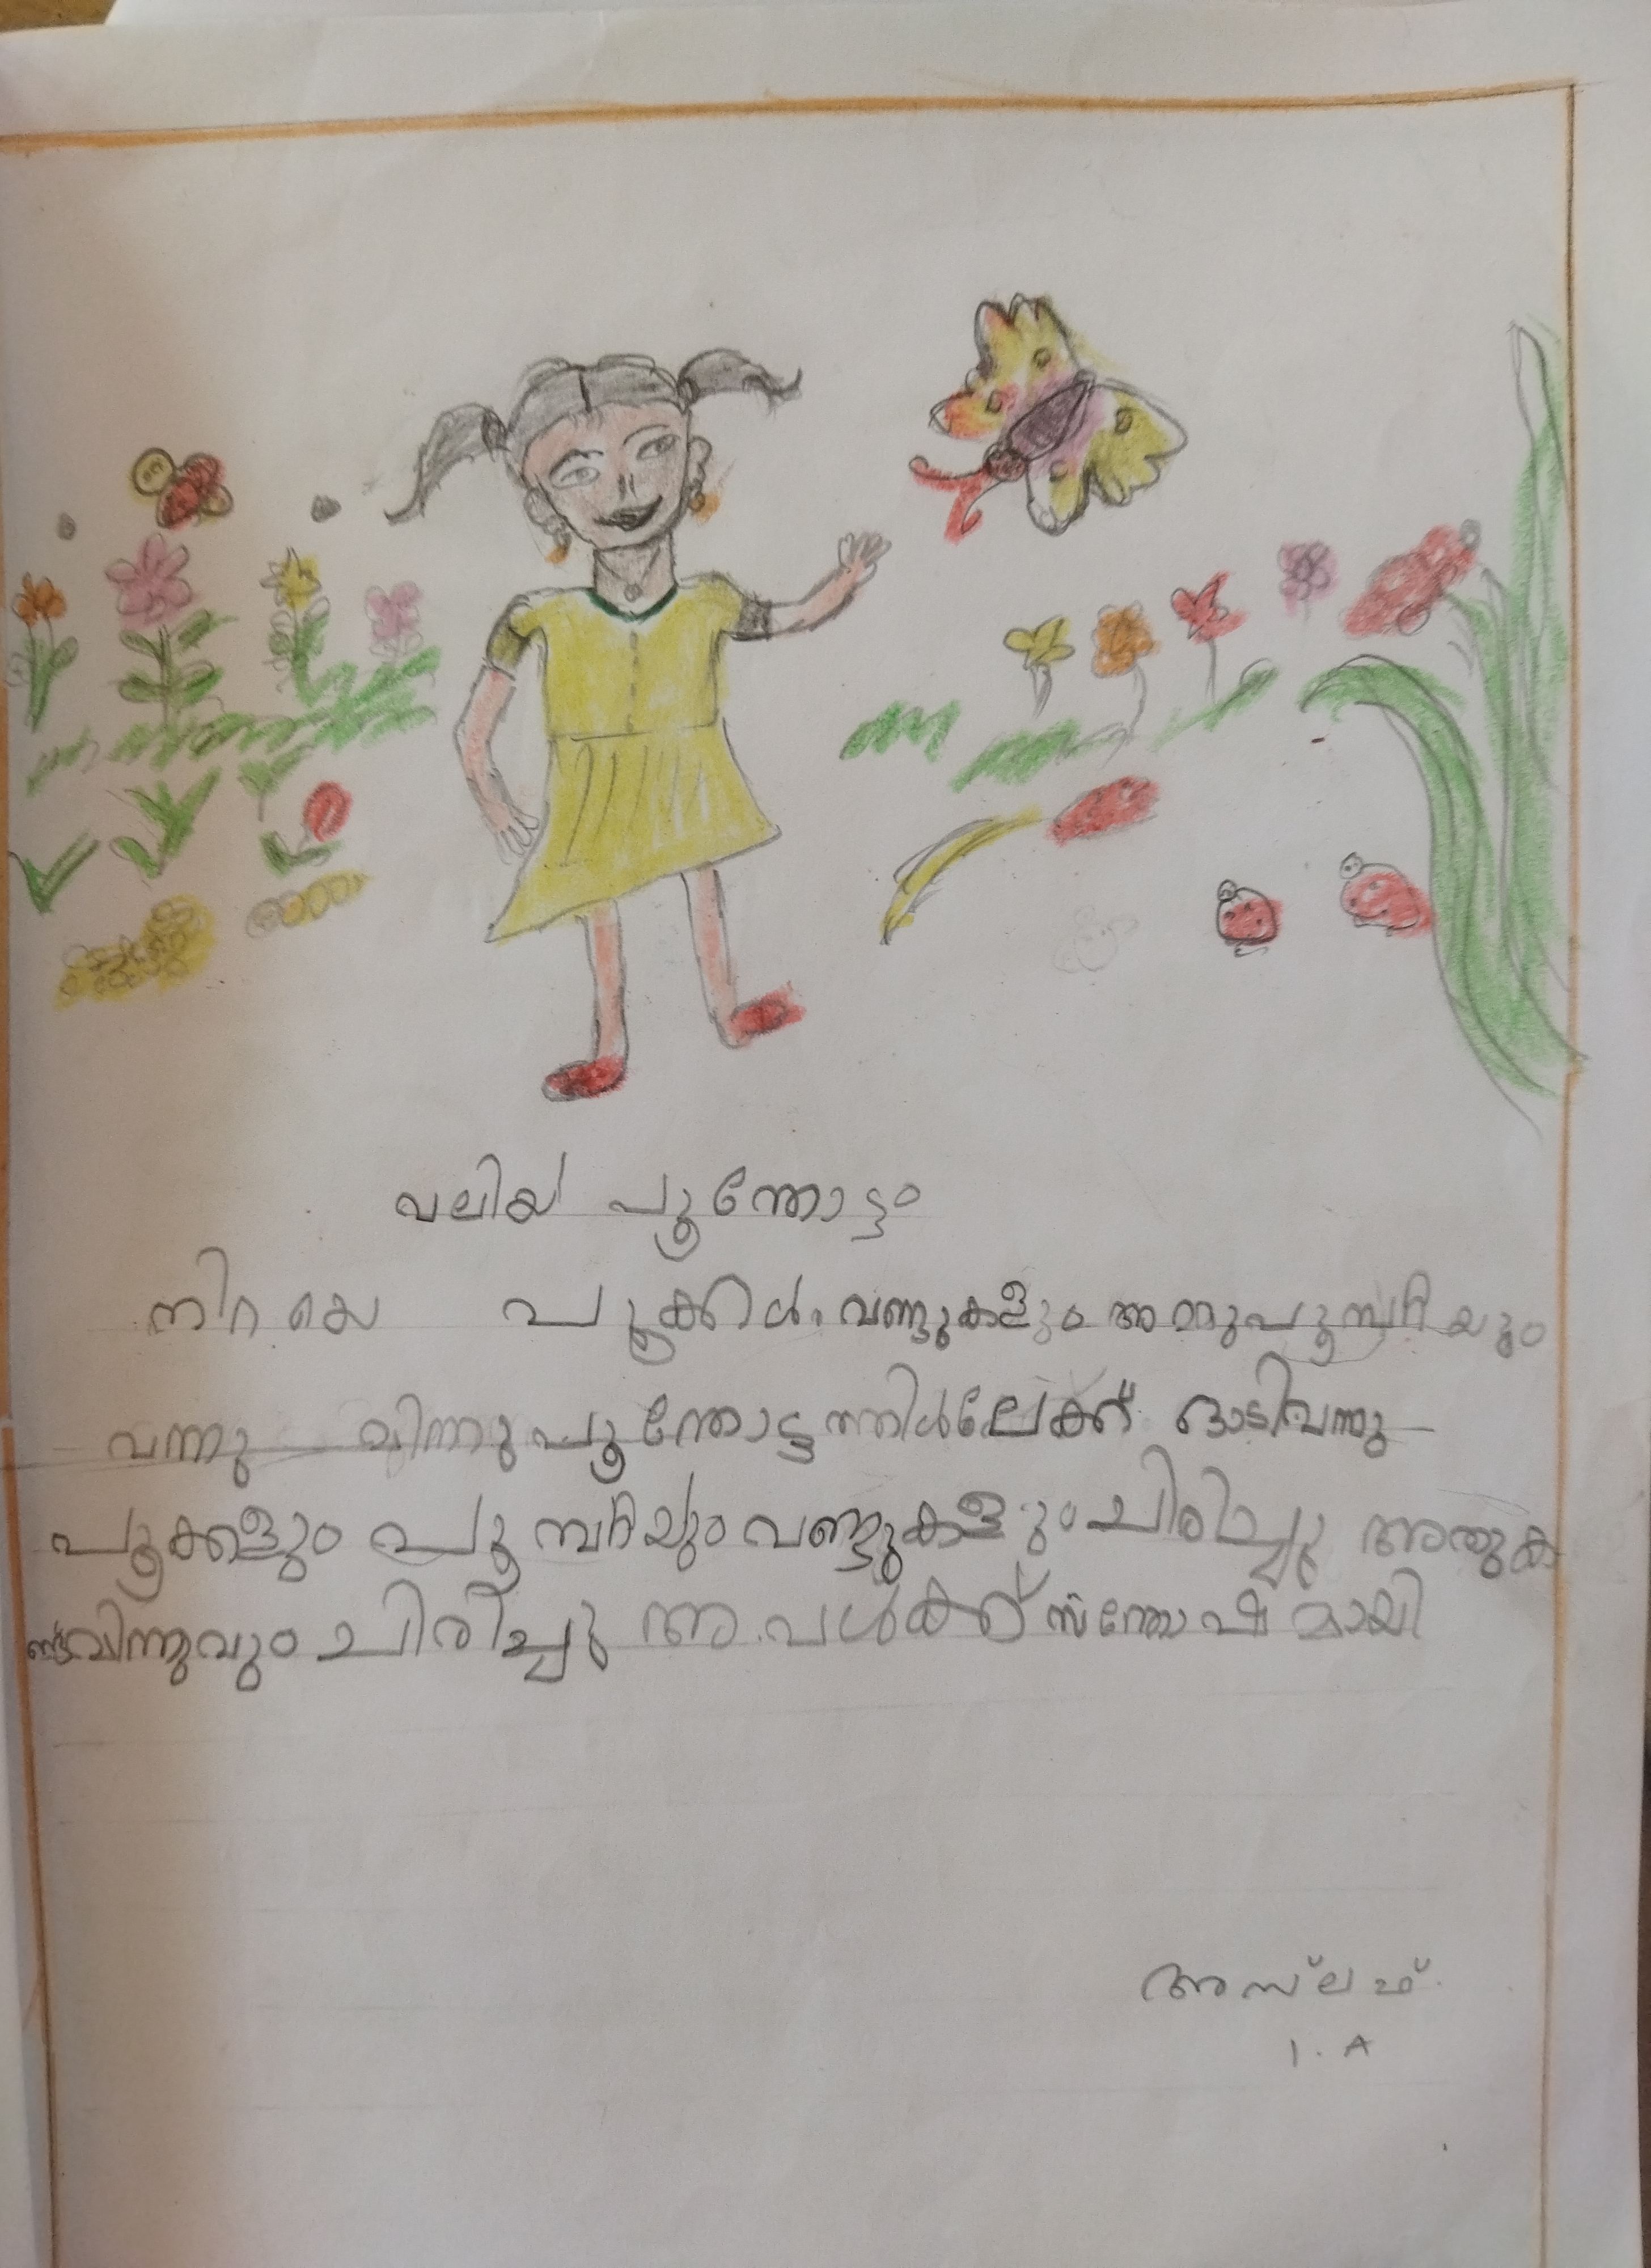 വലിയ പൂന്തോട്ടം
നിറയെ പൂക്കൾ. വണ്ടുകളും അമ്മുപൂമ്പാറ്റയും
വന്നു മിന്നു പൂന്തോട്ടത്തിൽലേക്ക് ഓടിവന്നു
പൂക്കളും പൂമ്പാറ്റയും വണ്ടുകളും ചിരിച്ചു അതുക
ണ്ട് മിന്നുവും ചിരിച്ചു അവൾക്ക് സന്തോഷമായി
അസ്ലഹ്.
1. A